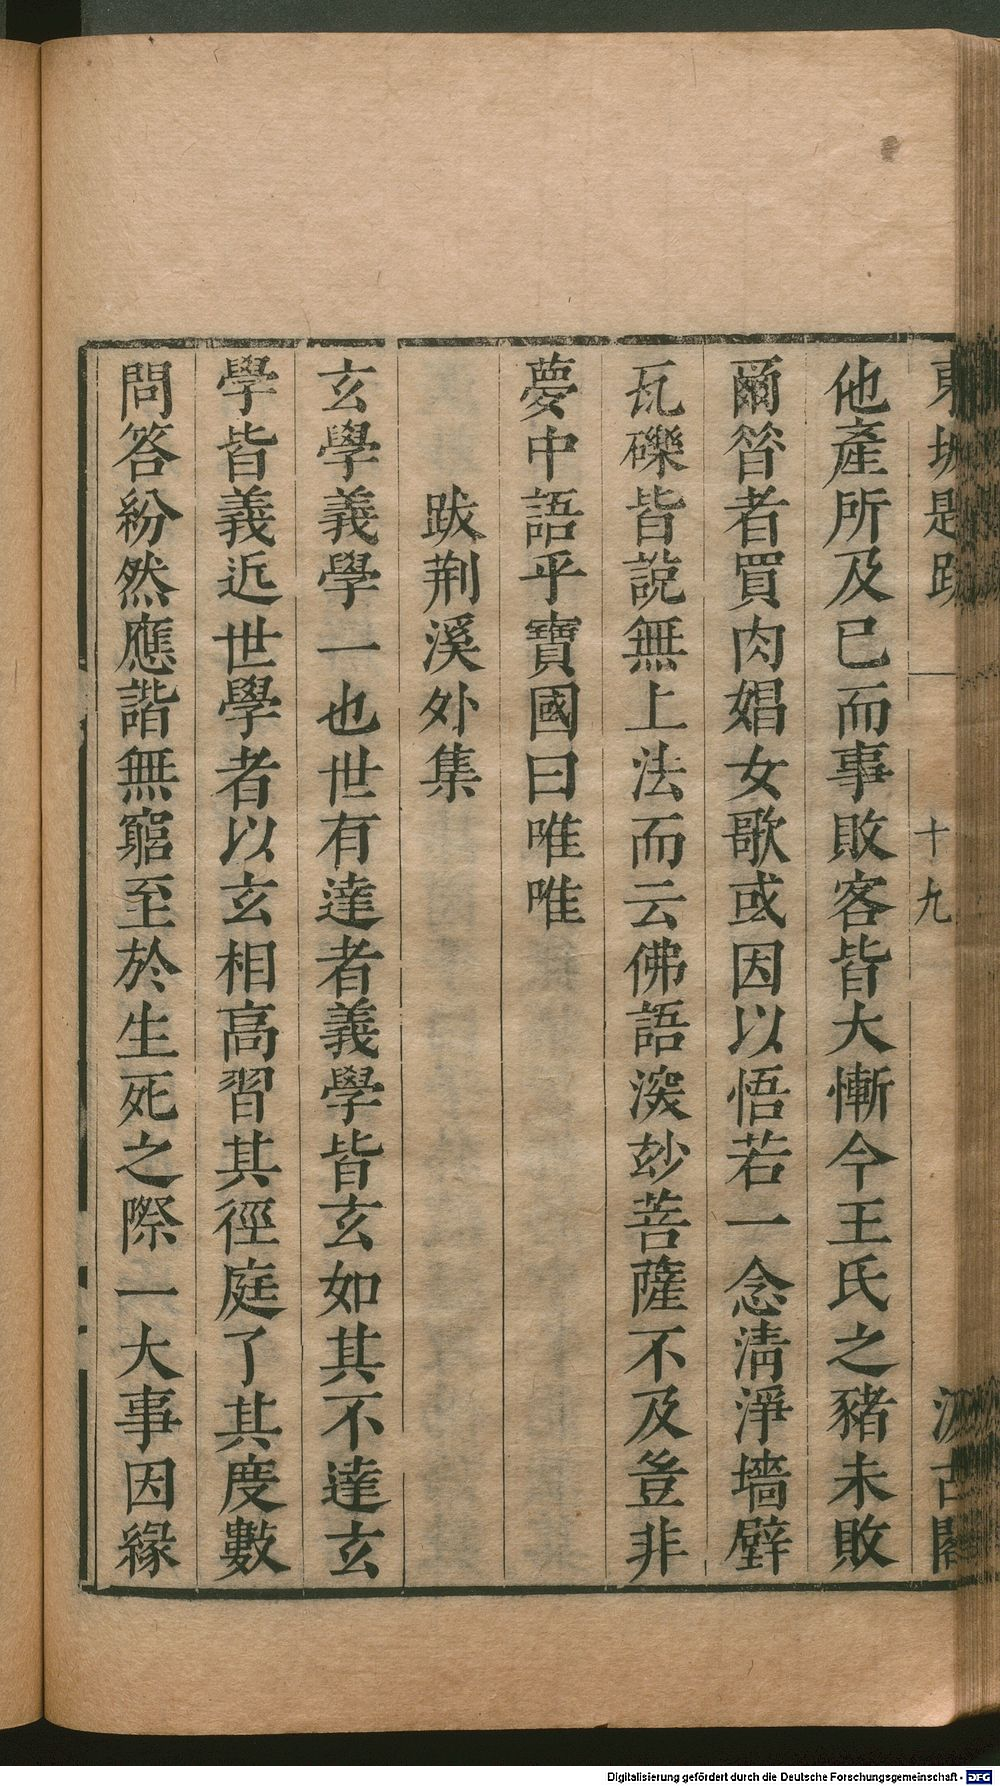 東坡題跋 一 十九 汲古閣
他產所及已而事敗客皆大慚今王氏之豬未敗
爾昝者買肉娼女歌或因以悟若一念淸淨墻壁
瓦礫皆說無上法而云佛語深玅菩薩不及豈非
夢中語乎寶國曰唯唯
跋荆溪外集
玄學義學一也世有達者義學皆玄如其不達玄
學皆義近世學者以玄相高習其徑庭了其度數
問答紛然應諧無窮至於生死之際一大事因緣
Digitalisierung gefördert durch die Deutsche Forschungsgemeinschaft - DFG